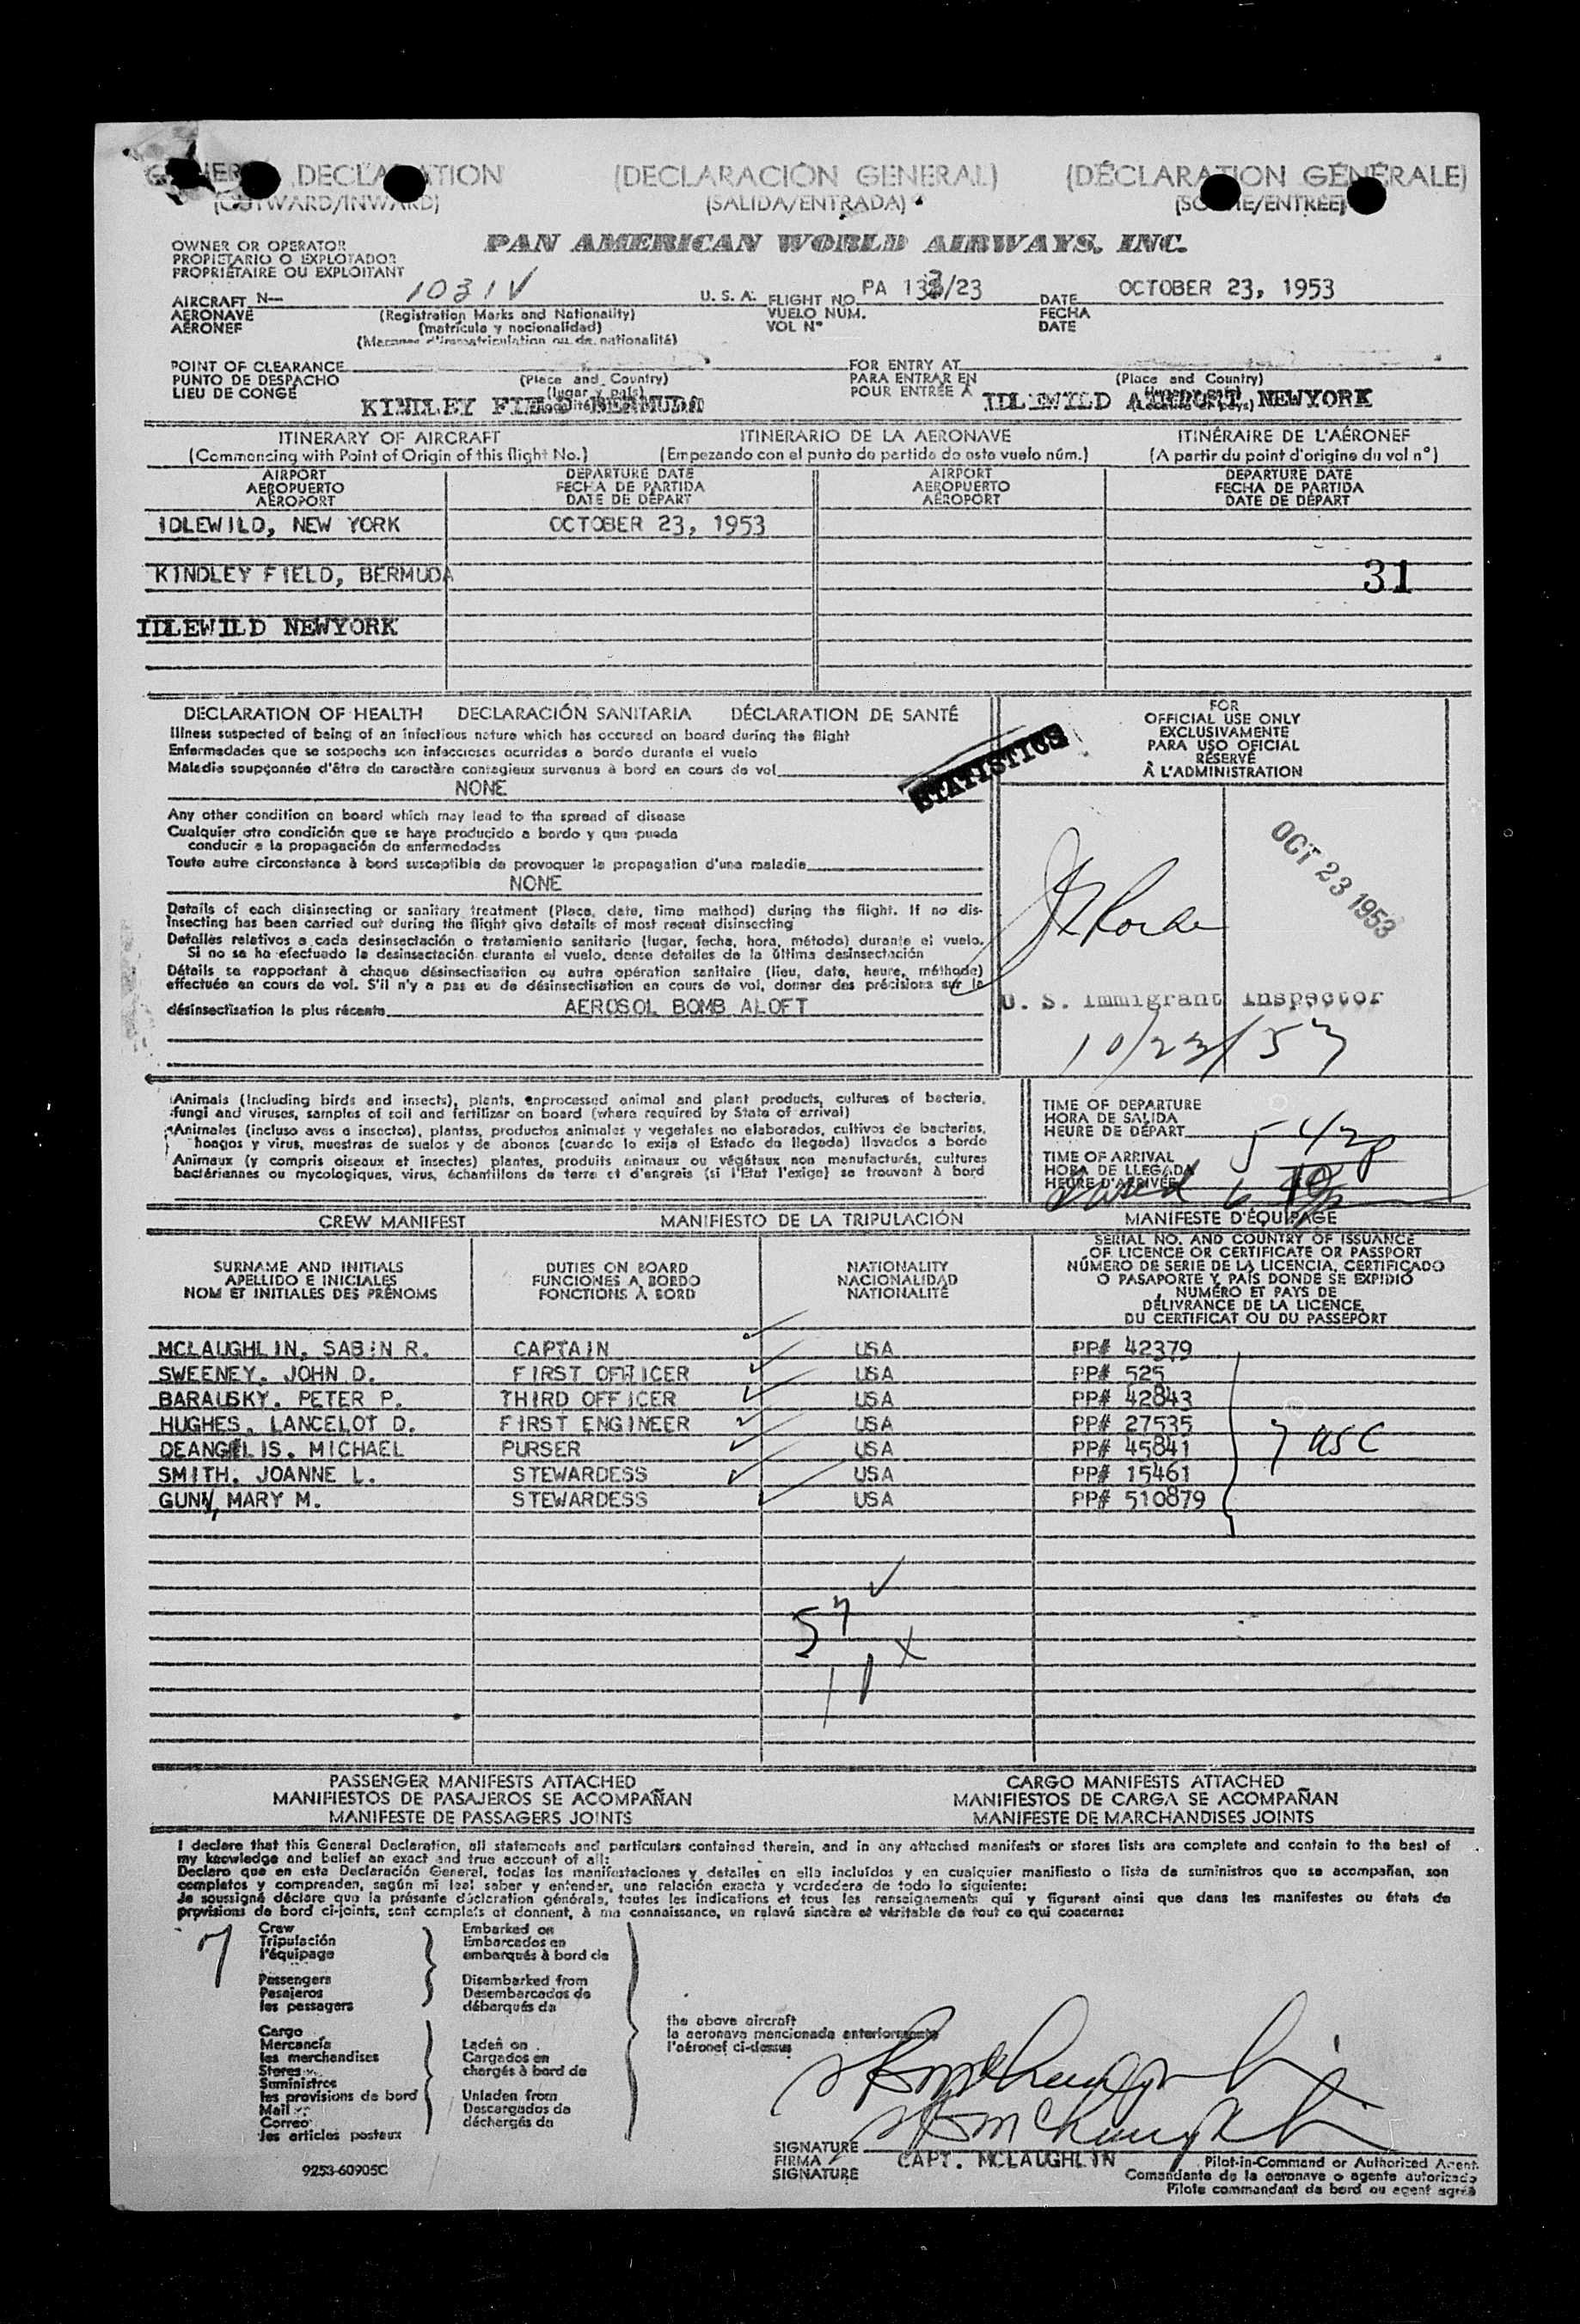 GENERAL DECLARATION (DECLARACIÓN GENERAL) (DÉCLARATION GÉNÉRALE)
(OUTWARD/INWARD) (SALIDA/ENTRADA) (SORTIE/ENTREE)
OWNER OR OPERATOR PAN AMERICAN WORLD AIRWAYS, INC.
PROPIETARIO O EXPLOTADOR
PROPRIÉTAIRE OU EXPLOITANT
AIRCRAFT N— 1031V U. S. A. FLIGHT NO. PA 133/23 DATE OCTOBER 23, 1953
AERONAVE (Registration Marks and Nationality) VUELO NUM. FECHA
AÉRONEF (matrícula y nacionalidad) VOL Nº DATE
(Marques d'immatriculation ou de nationalité)
POINT OF CLEARANCE FOR ENTRY AT
PUNTO DE DESPACHO (Place and Country) PARA ENTRAR EN (Place and Country)
LIEU DE CONGÉ (lugar y país) POUR ENTRÉE À
KINDLEY FIELD BERMUDA IDLEWILD AIRPORT, NEWYORK
ITINERARY OF AIRCRAFT ITINERARIO DE LA AERONAVE ITINÉRAIRE DE L'AÉRONEF
(Commencing with Point of Origin of this flight No.) (Empezando con el punto de partida de este vuelo núm.) (A partir du point d'origine du vol nº)
AIRPORT DEPARTURE DATE AIRPORT DEPARTURE DATE
AEROPUERTO FECHA DE PARTIDA AEROPUERTO FECHA DE PARTIDA
AÉROPORT DATE DE DÉPART AÉROPORT DATE DE DÉPART
IDLEWILD, NEW YORK OCTOBER 23, 1953
KINDLEY FIELD, BERMUDA 31
IDLEWILD NEWYORK
DECLARATION OF HEALTH DECLARACIÓN SANITARIA DÉCLARATION DE SANTÉ
Illness suspected of being of an infectious nature which has occured on board during the flight
Enfermedades que se sospecha son infecciosas ocurridas a bordo durante el vuelo
Maladie soupçonnée d'être de caractère contagieux survenue à bord en cours de vol
NONE
STATISTICS
FOR
OFFICIAL USE ONLY
EXCLUSIVAMENTE
PARA USO OFICIAL
RÉSERVÉ
À L'ADMINISTRATION
Any other condition on board which may lead to the spread of disease
Cualquier otra condición que se haya producido a bordo y que pueda
conducir a la propagación de enfermedades
Toute autre circonstance à bord susceptible de provoquer la propagation d'une maladie
NONE
OCT 23 1953
Details of each disinsecting or sanitary treatment (Place, date, time method) during the flight. If no dis-
insecting has been carried out during the flight give details of most recent disinsecting
Detalles relativos a cada desinsectación o tratamiento sanitario (lugar, fecha, hora, método) durante el vuelo.
Si no se ha efectuado la desinsectación durante el vuelo, dense detalles de la última desinsectación
Détails se rapportant à chaque désinsectisation ou autre opération sanitaire (lieu, date, heure, méthode)
effectuée en cours de vol. S'il n'y a pas eu de désinsectisation en cours de vol, donner des précisions sur la
désinsectisation la plus récente AEROSOL BOMB ALOFT
U. S. Immigrant Inspector
10/23/53
Animals (Including birds and insects), plants, enprocessed animal and plant products, cultures of bacteria,
fungi and viruses, samples of soil and fertilizer on board (where required by State of arrival)
Animales (incluso aves e insectos), plantas, productos animales y vegetales no elaborados, cultivos de bacterias,
hongos y virus, muestras de suelos y de abonos (cuando lo exija el Estado de llegada) llevados a bordo
Animaux (y compris oiseaux et insectes) plantes, produits animaux ou végétaux non manufacturés, cultures
bactériennes ou mycologiques, virus, échantillons de terre et d'engrais (si l'Etat l'exige) se trouvant à bord
TIME OF DEPARTURE
HORA DE SALIDA
HEURE DE DÉPART 542p
TIME OF ARRIVAL
HORA DE LLEGADA
HEURE D'ARRIVÉE
CREW MANIFEST MANIFIESTO DE LA TRIPULACIÓN MANIFESTE D'ÉQUIPAGE
SURNAME AND INITIALS DUTIES ON BOARD NATIONALITY SERIAL NO. AND COUNTRY OF ISSUANCE
APELLIDO E INICIALES FUNCIONES A BORDO NACIONALIDAD OF LICENCE OR CERTIFICATE OR PASSPORT
NOM ET INITIALES DES PRÉNOMS FONCTIONS À BORD NATIONALITÉ NÚMERO DE SERIE DE LA LICENCIA, CERTIFICADO
O PASAPORTE Y PAÍS DONDE SE EXPIDIÓ
NUMÉRO ET PAYS DE
DÉLIVRANCE DE LA LICENCE,
DU CERTIFICAT OU DU PASSEPORT
MCLAUGHLIN, SABIN R. CAPTAIN USA PP# 42379
SWEENEY, JOHN D. FIRST OFFICER USA PP# 525
BARAUSKY, PETER P. THIRD OFFICER USA PP# 42843
HUGHES, LANCELOT D. FIRST ENGINEER USA PP# 27535
DEANGELIS, MICHAEL PURSER USA PP# 45841 7 USC
SMITH, JOANNE L. STEWARDESS USA PP# 15461
GUNN, MARY M. STEWARDESS USA PP# 510879
57
PASSENGER MANIFESTS ATTACHED CARGO MANIFESTS ATTACHED
MANIFIESTOS DE PASAJEROS SE ACOMPAÑAN MANIFIESTOS DE CARGA SE ACOMPAÑAN
MANIFESTE DE PASSAGERS JOINTS MANIFESTE DE MARCHANDISES JOINTS
I declare that this General Declaration, all statements and particulars contained therein, and in any attached manifests or stores lists are complete and contain to the best of
my knowledge and belief an exact and true account of all:
Declaro que en esta Declaración General, todas las manifestaciones y detalles en ella incluídos y en cualquier manifiesto o lista de suministros que se acompañan, son
completos y comprenden, según mi leal saber y entender, una relación exacta y verdedera de todo lo siguiente:
Je soussigné déclare que la présente déclaration générale, toutes les indications et tous les renseignements qui y figurent ainsi que dans les manifestes ou états de
provisions de bord ci-joints, sont complets et donnent, à ma connaissance, un relevé sincère et véritable de tout ce qui concerne:
7 Crew Embarked on
Tripulación Embarcados en
l'équipage embarqués à bord de
Passengers Disembarked from
Pasajeros Desembarcados de
les passagers débarqués de
the above aircraft
la aeronave mencionada anteriormente
l'aéronef ci-dessus
Cargo
Mercancía Laden on
les merchandises Cargados en
Stores chargés à bord de
Suministros
les provisions de bord Unladen from
Mail Descargados de
Correo déchargés de
les articles postaux
SIGNATURE
FIRMA CAPT. MCLAUGHLIN Pilot-in-Command or Authorized Agent
SIGNATURE Comandante de la aeronave o agente autorizado
9253-60905C Pilote commandant de bord ou agent agréé